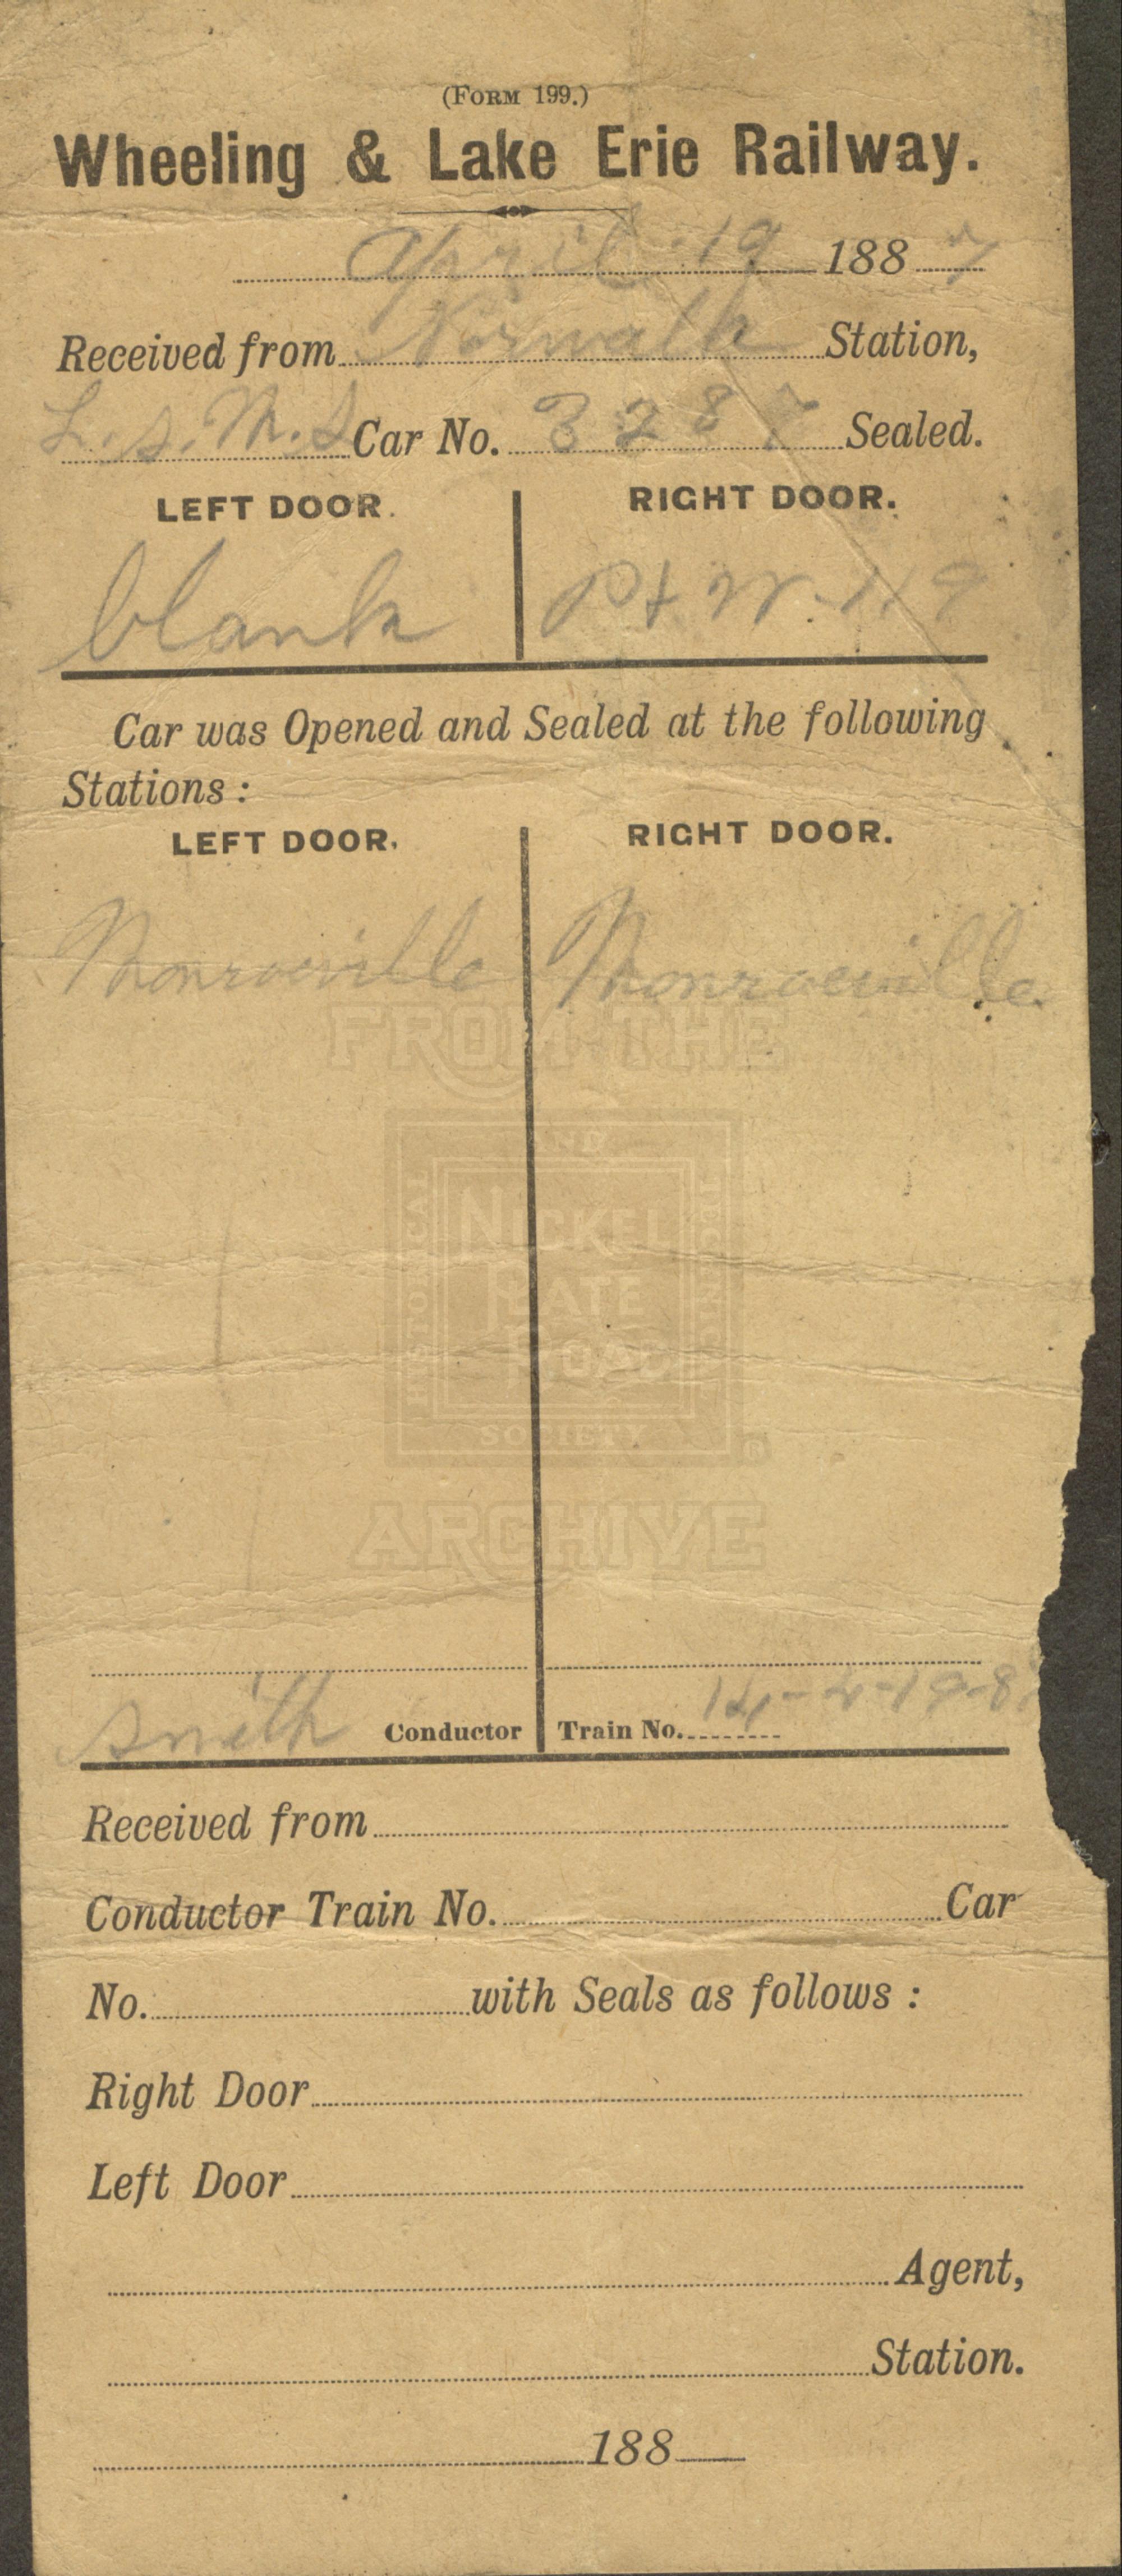 (FORM 199.)
Wheeling & Lake Erie Railway.
April 19 1887
Received from Norwalk Station,
L.S.M.S Car No. 3287 Sealed.
LEFT DOOR. RIGHT DOOR.
blank
Car was Opened and Sealed at the following
Stations:
LEFT DOOR. RIGHT DOOR.
Monroeville Monroeville
FROM THE
NICKEL
PLATE
ROAD
HISTORICAL AND TECHNICAL
SOCIETY
ARCHIVE
Smith Conductor Train No.
Received from
Conductor Train No. Car
No. with Seals as follows:
Right Door
Left Door
Agent,
Station.
188